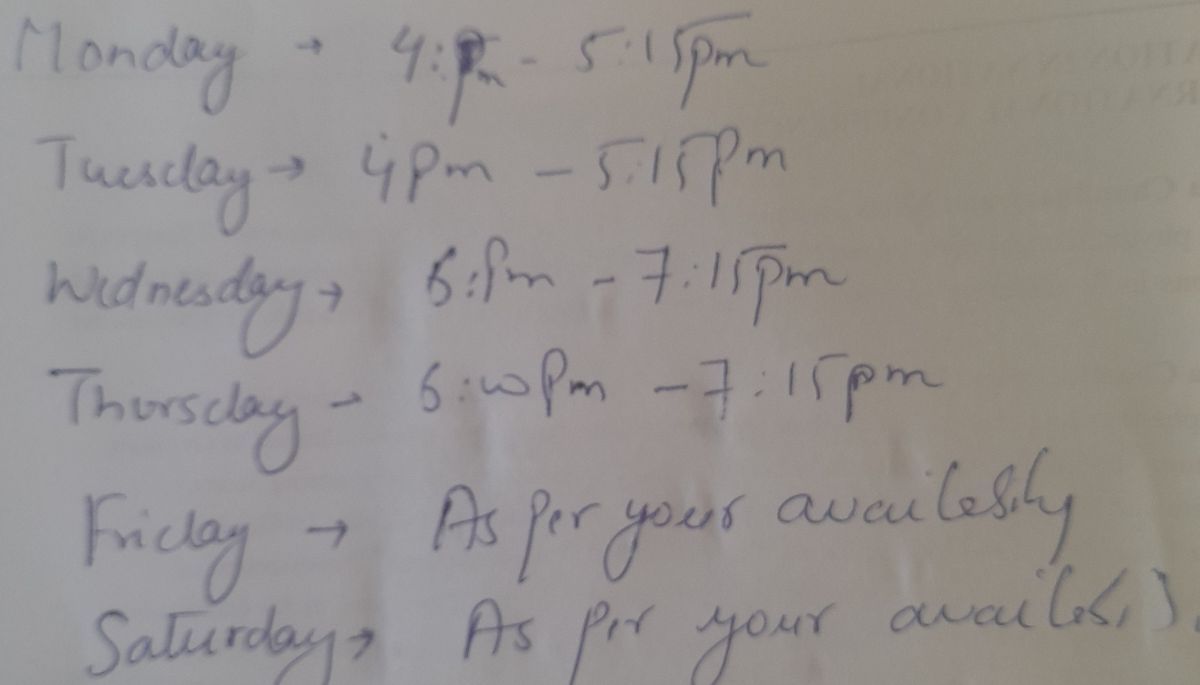 Monday → 4:Pm - 5:15pm
Tuesday → 4pm - 5:15pm
Wednesday → 6:pm - 7:15pm
Thursday - 6:00pm - 7:15pm
Friday → As per your availability
Saturday → As per your